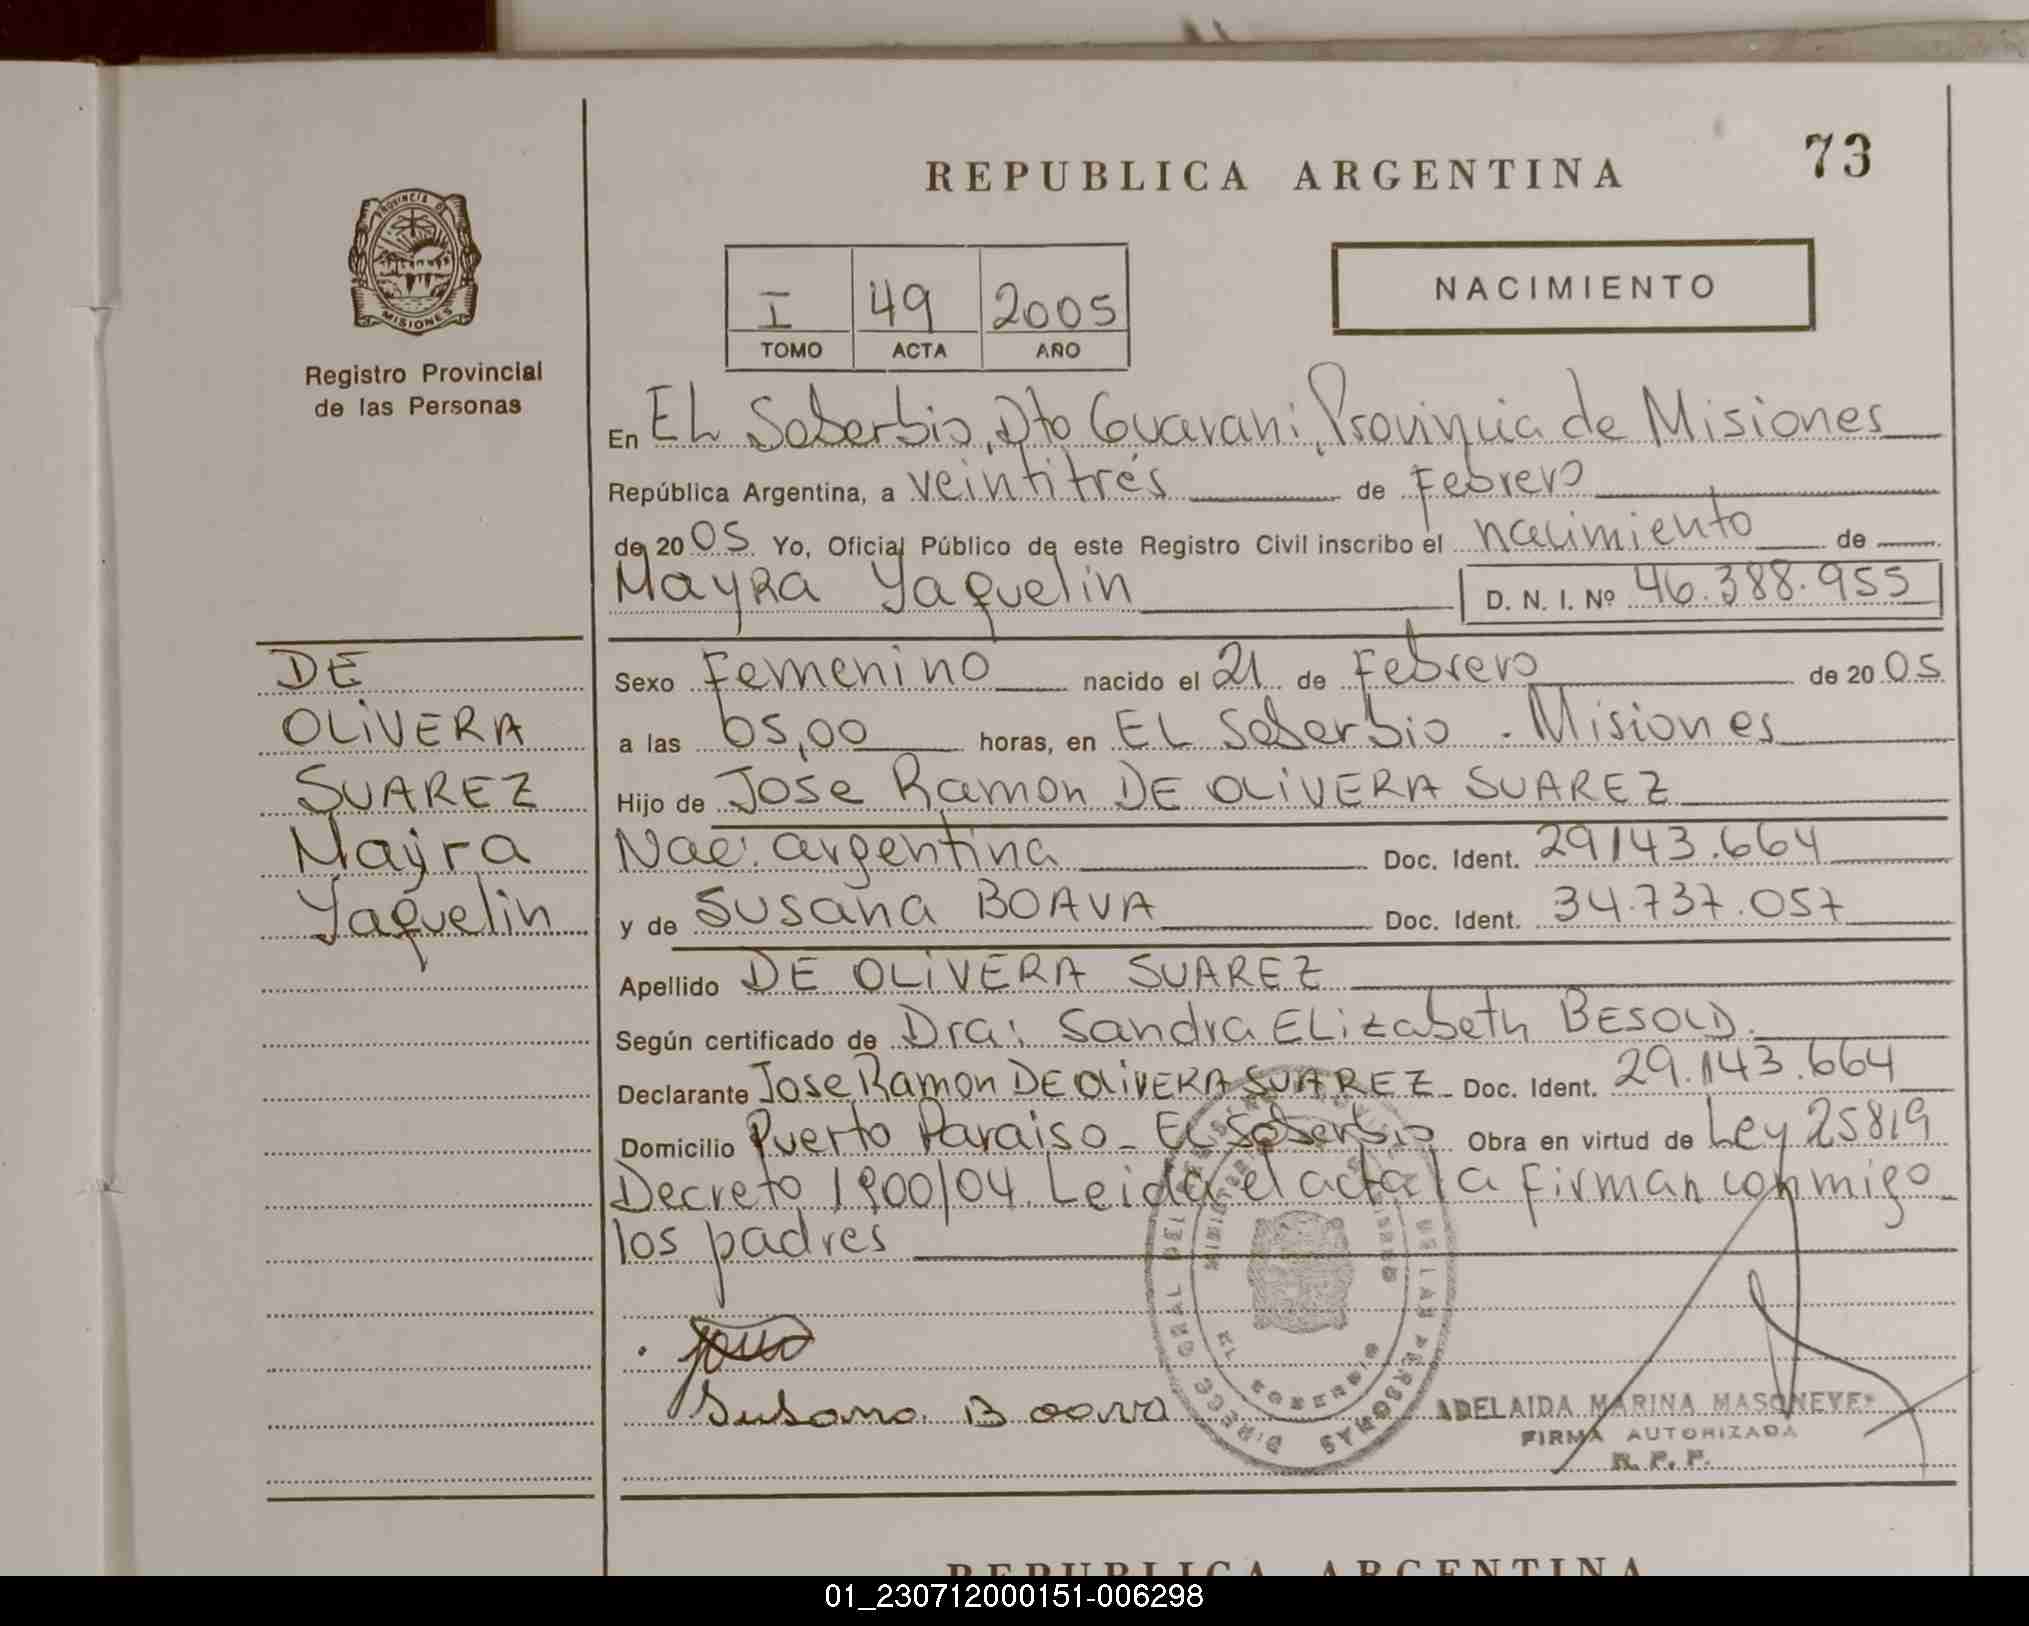 REPUBLICA ARGENTINA
73
PROVINCIA DE
MISIONES
Registro Provincial
de las Personas
I 49 2005
TOMO ACTA AÑO
NACIMIENTO
En EL Soberbio, Dto Guarani, Provinquia de Misiones
República Argentina, a veintitrés de Febrero
de 2005 Yo, Oficial Público de este Registro Civil inscribo el nacimiento de
Mayra Yaquelin D. N. I. Nº 46.388.955
DE
OLIVERA
SUAREZ
Mayra
Yaquelin
Sexo Femenino nacido el 21 de Febrero de 2005
a las 05,00 horas, en EL Soberbio - Misiones
Hijo de Jose Ramon DE OLIVERA SUAREZ
Nac: argentina Doc. Ident. 29143.664
y de Susana BOAVA Doc. Ident. 34.737.057
Apellido DE OLIVERA SUAREZ
Según certificado de Dra: Sandra ELizabeth BESOLD.
Declarante Jose Ramon DE OLIVERA SUAREZ Doc. Ident. 29.143.664
Domicilio Puerto Paraiso - EL Soberbio Obra en virtud de Ley 25819
Decreto 1900/04. Leida el acta la firman conmigo
los padres
Susana Boava
ADELAIDA MARINA MASONEVE
FIRMA AUTORIZADA
R. P. P.
EL SOBERBIO
DE LAS PERSONAS
REPUBLICA ARGENTINA
01_230712000151-006298